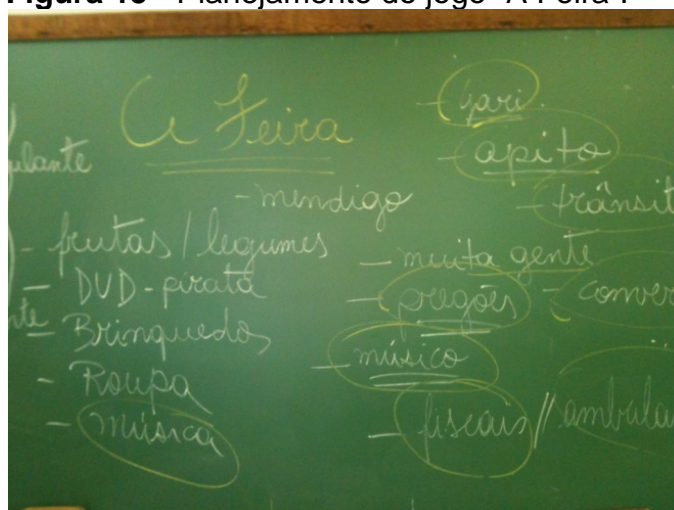 A Feira
- mendigo
- frutas / legumes
- DVD - pirata
- Brinquedos
- Roupa
- música
- gari
- apito
- trânsit
- muita gente
- pregões
- conver
- músico
- fiscais // ambula
ulante